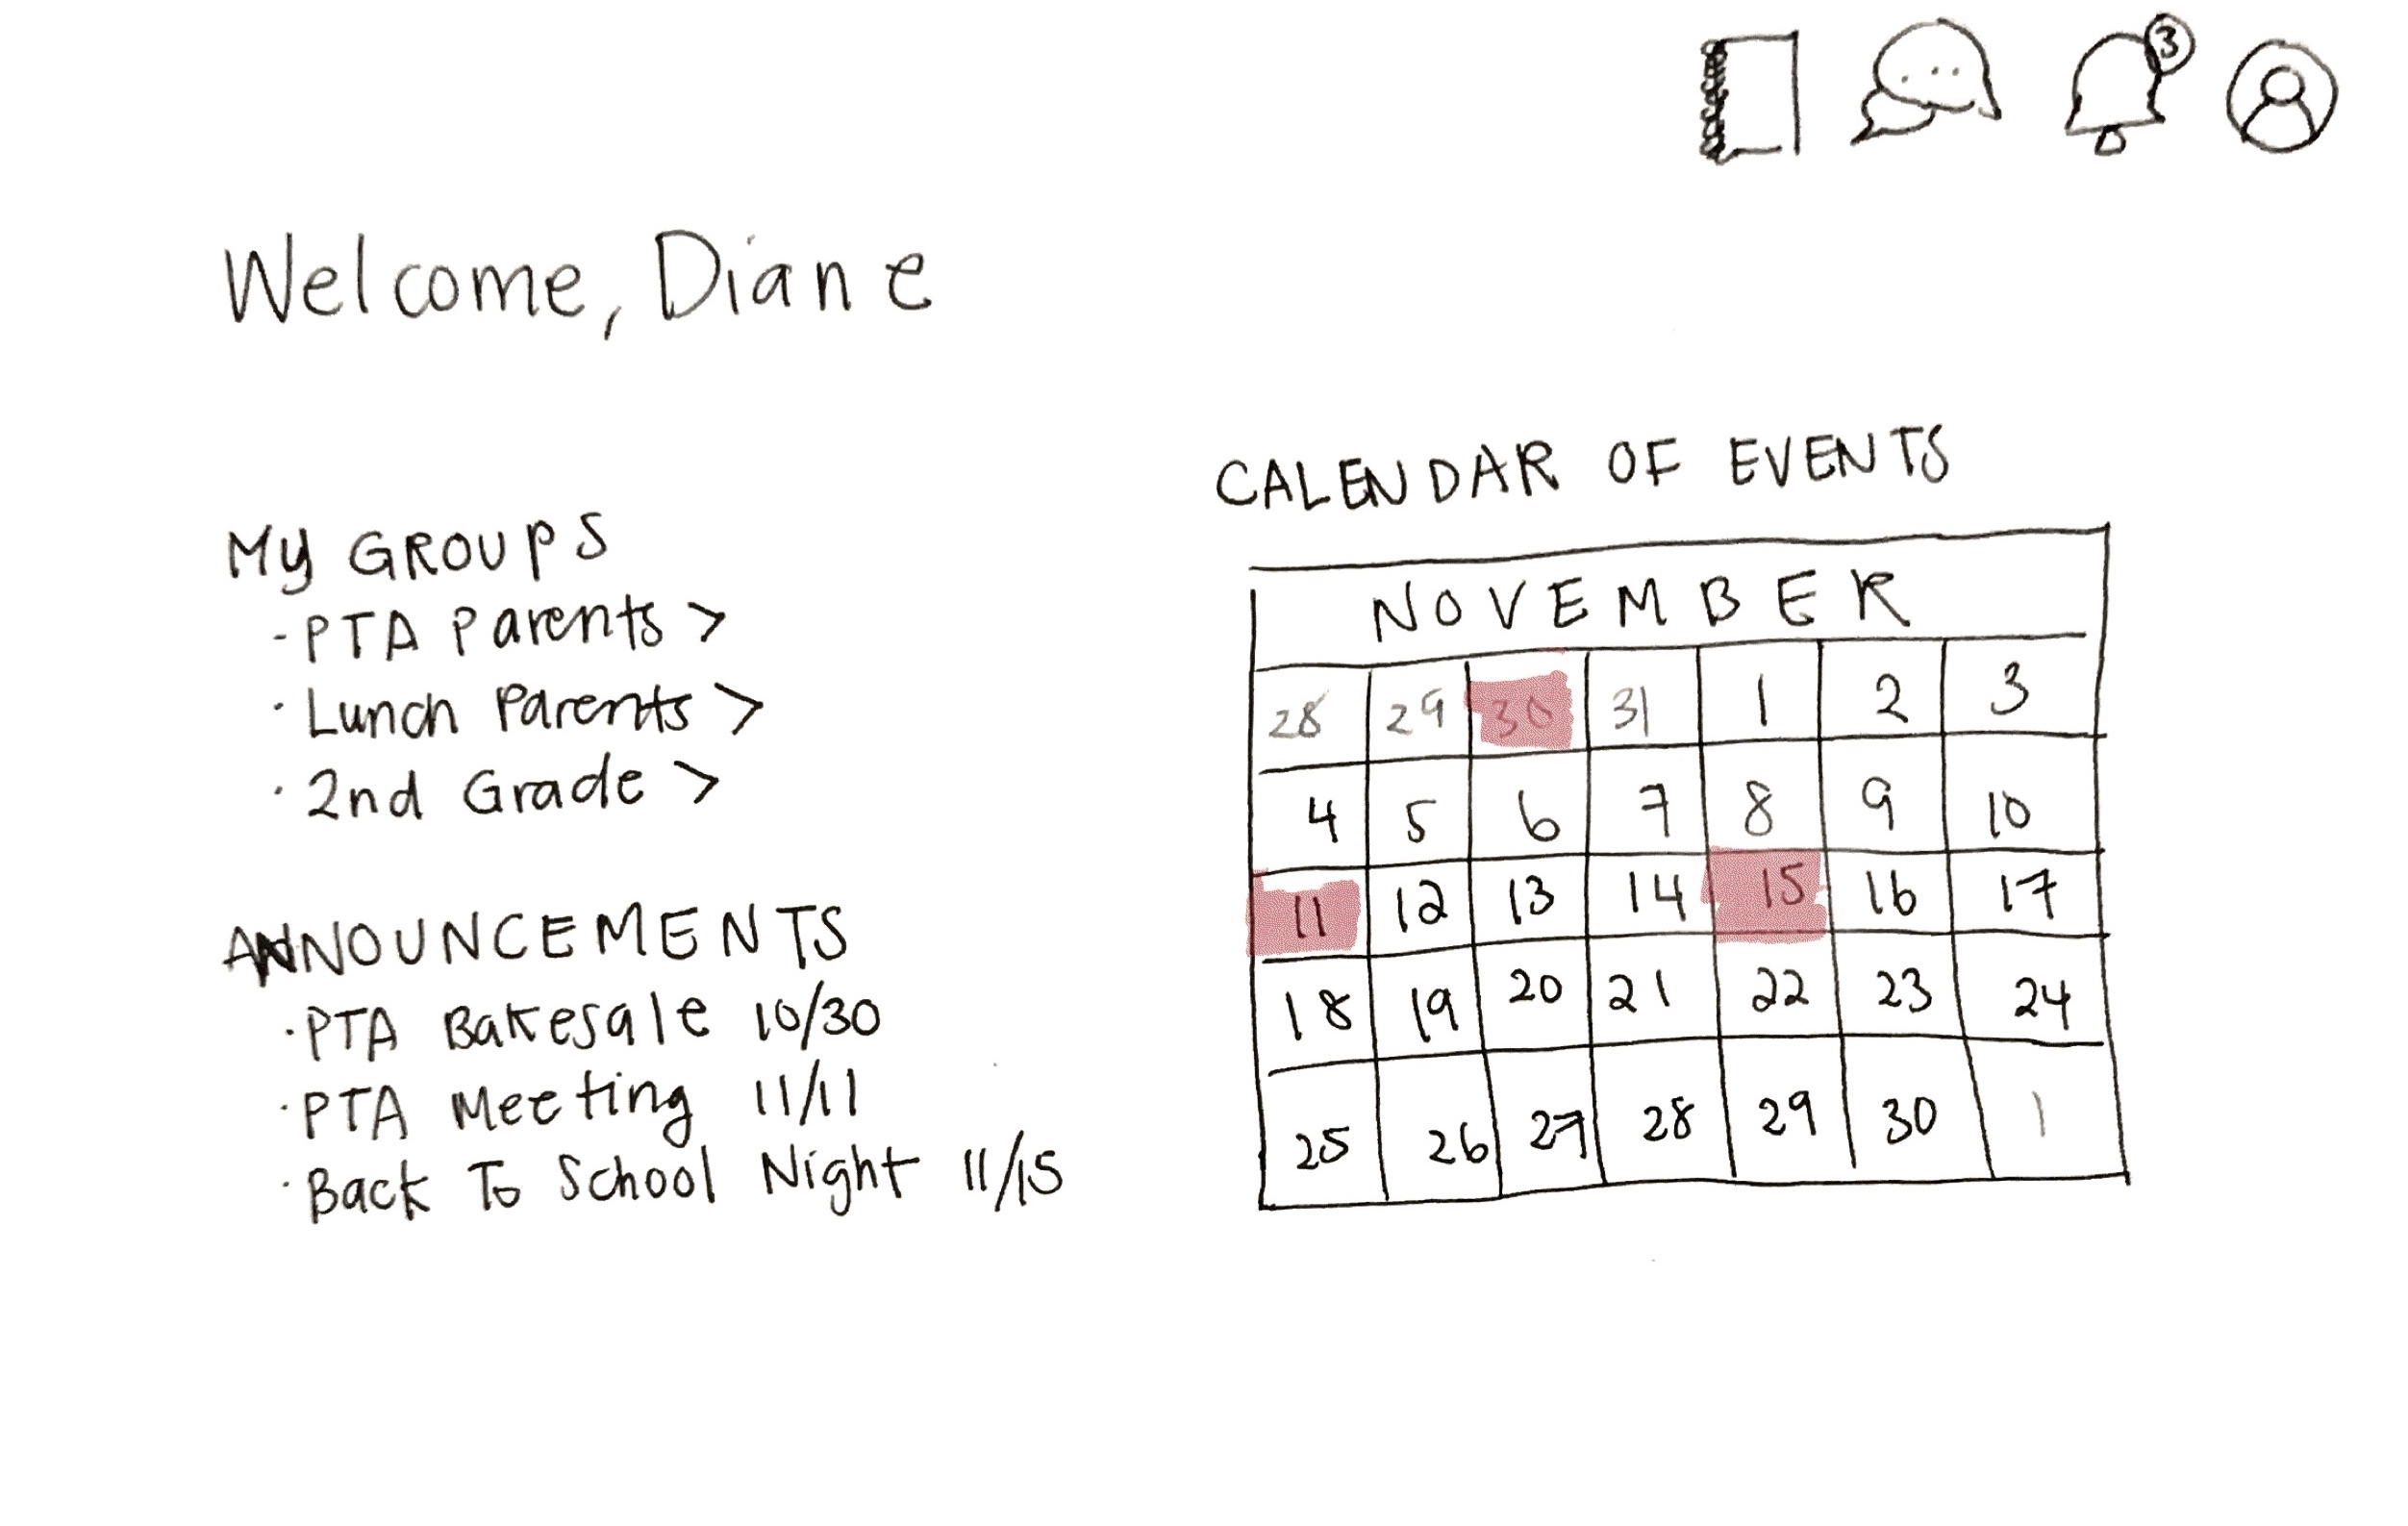 3
Welcome, Diane
CALENDAR OF EVENTS
My GROUPS
-PTA Parents >
· Lunch Parents >
· 2nd Grade >
ANNOUNCEMENTS
·PTA Bakesale 10/30
·PTA Meeting 11/11
·Back To School Night 11/15
NOVEMBER
28 29 30 31 1 2 3
4 5 6 7 8 9 10
11 12 13 14 15 16 17
18 19 20 21 22 23 24
25 26 27 28 29 30 1